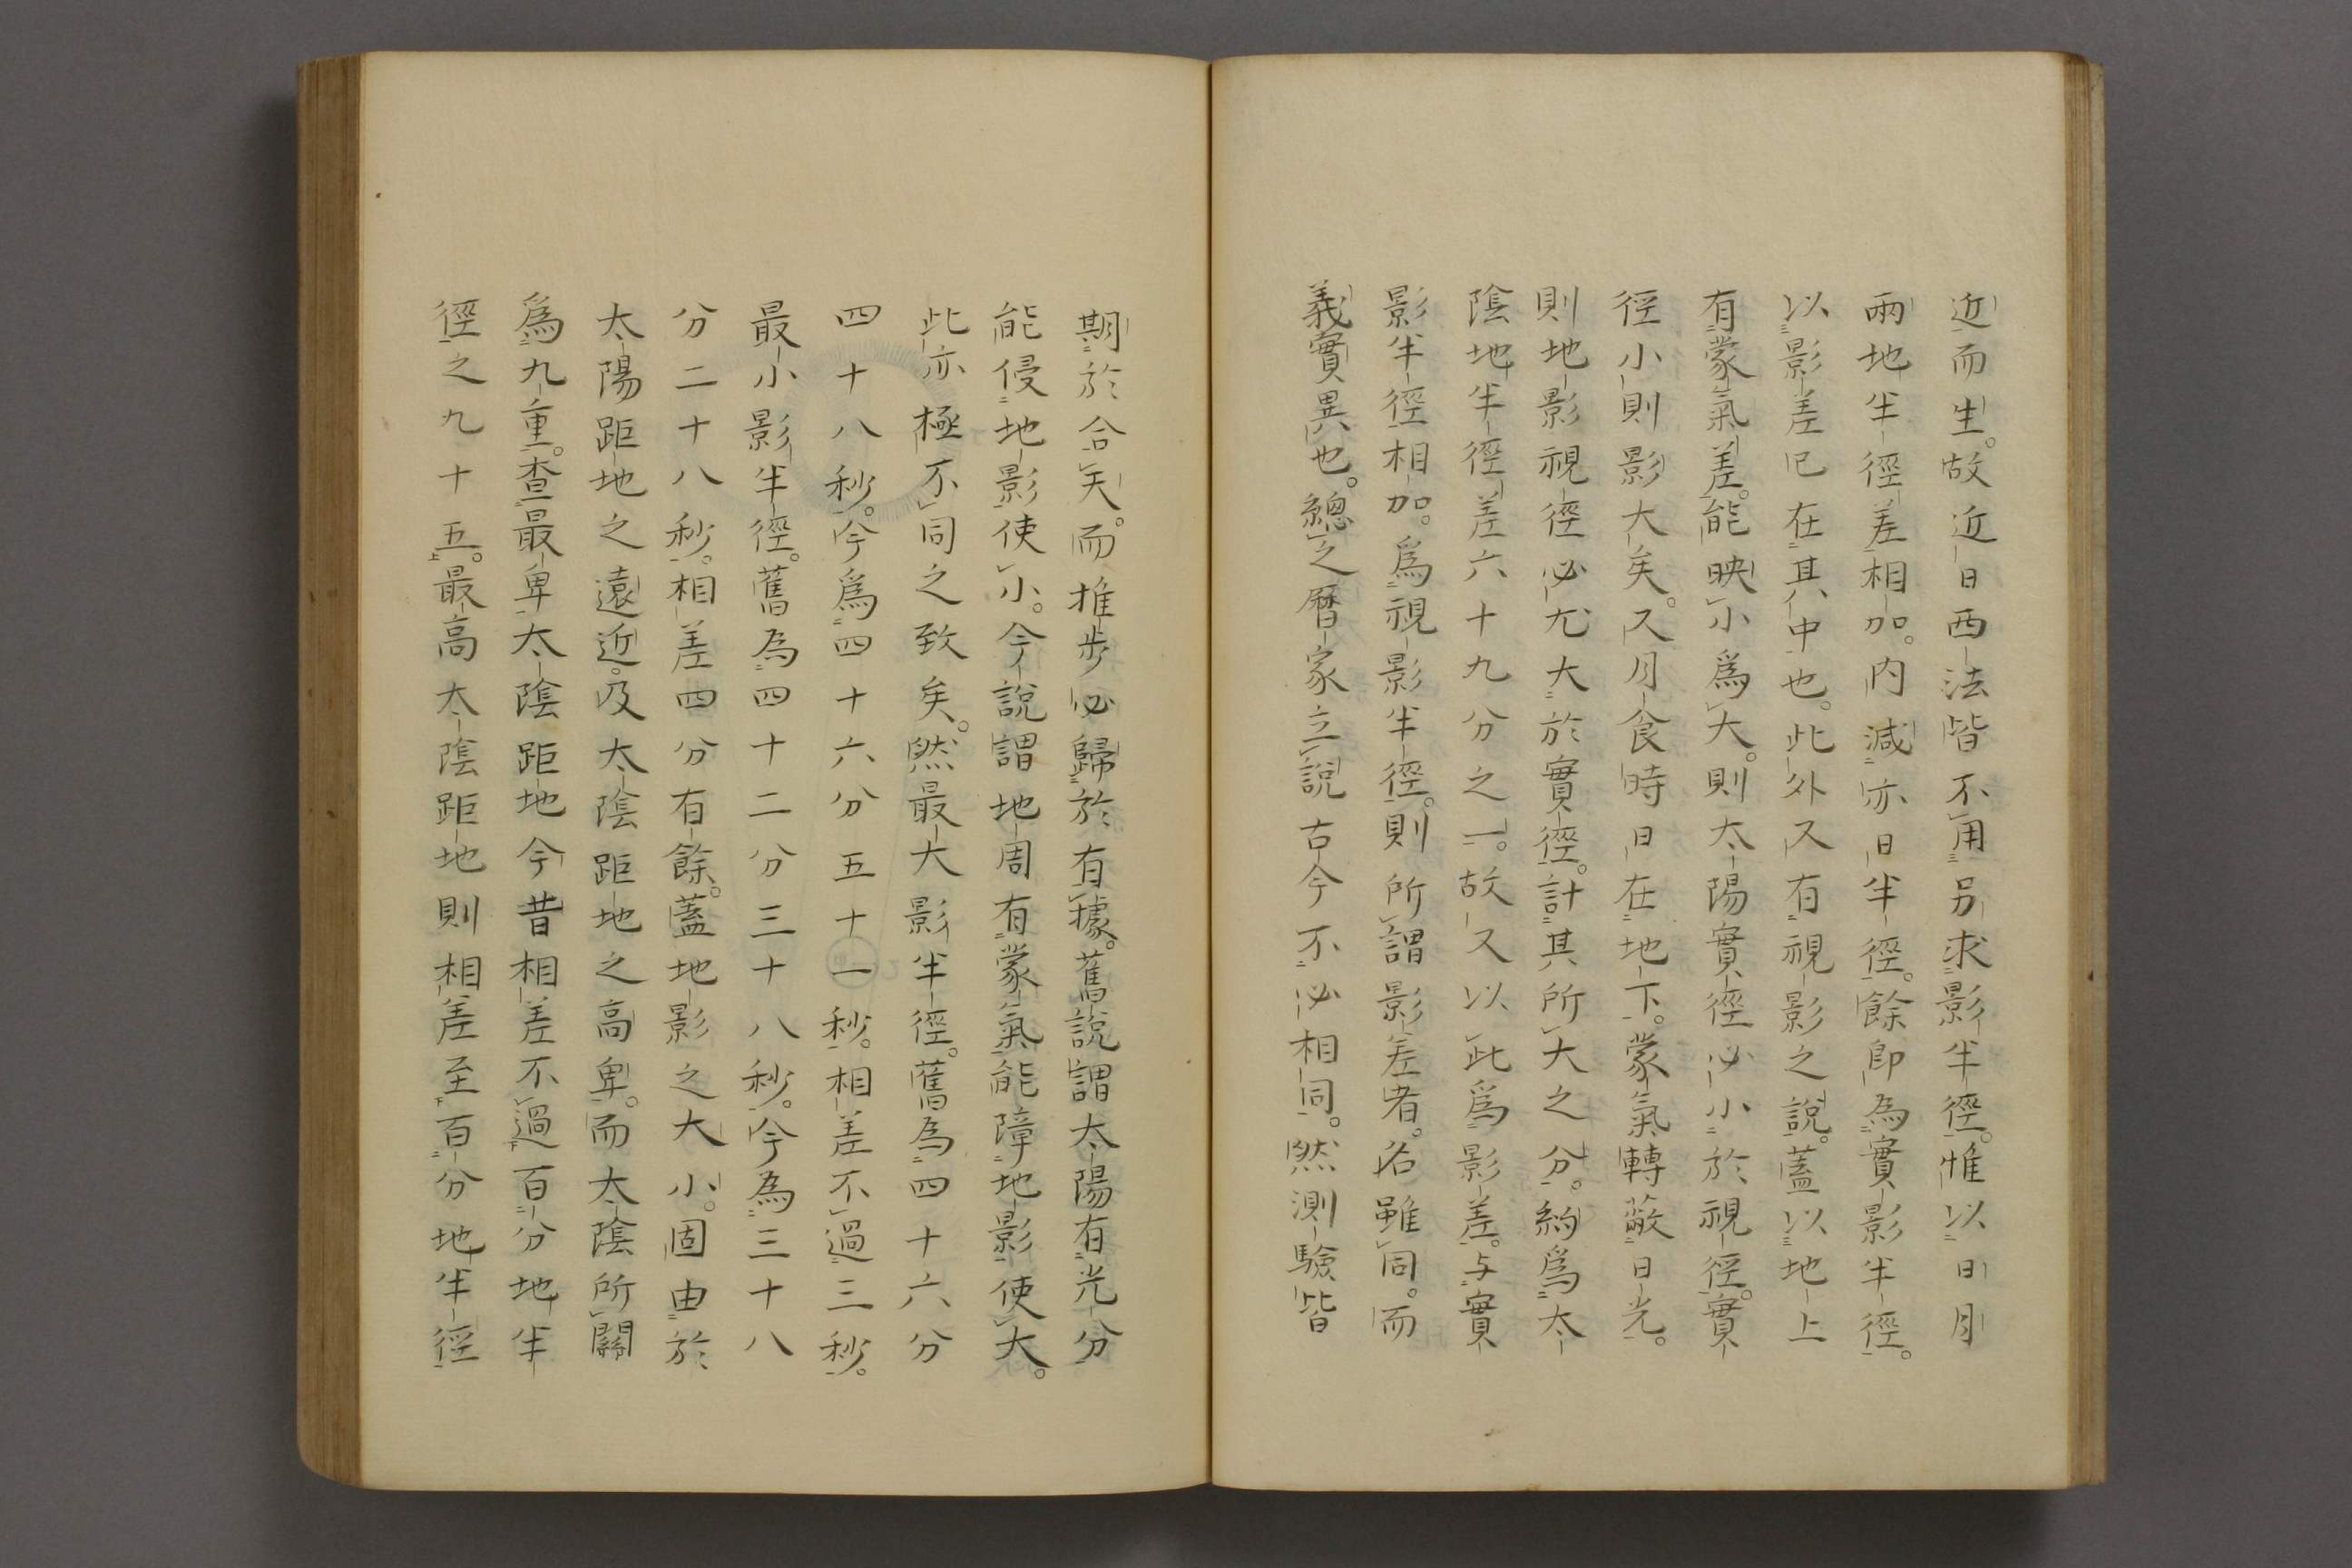 近而生。故近日西法皆不用另求影半徑。惟以日月
兩地半徑差相加。内減亦日半徑。餘即為實影半徑。
以影差已在其中也。此外又有視影之說。蓋以地上
有蒙氣差。能映小爲大。則太陽實徑必小於視徑。實
徑小則影大矣。又月食時日在地下。蒙氣轉蔽日光。
則地影視徑必尤大於實徑。計其所大之分。約爲太
陰地半徑差六十九分之一。故又以此爲影差。与實
影半徑相加。爲視影半徑。則所謂影差者。名雖同。而
義實異也。總之曆家立說古今不必相同。然測驗皆
期於合天。而推步必歸於有據。舊說謂太陽有光分
能侵地影使小。今說謂地周有蒙氣能障地影使大。
此亦極不同之致矣。然最大影半徑。舊為四十六分
四十八秒。今爲四十六分五十一秒。相差不過三秒。
最小影半徑。舊為四十二分三十八秒。今為三十八
分二十八秒。相差四分有餘。蓋地影之大小。固由於
太陽距地之遠近。及太陰距地之高卑。而太陰所關
爲九重。查最卑太陰距地今昔相差不過百分地半
徑之九十五。最高太陰距地則相差至百分地半徑